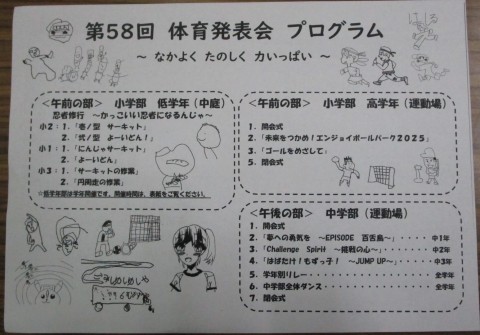 第58回 体育発表会 プログラム
～ なかよく たのしく 力いっぱい ～
＜午前の部＞ 小学部 低学年（中庭）
忍者修行 ～かっこいい忍者になるんじゃ～
小2：1．「壱ノ型 サーキット」
2．「弐ノ型 よーいどん！」
小1：1．「にんじゃサーキット」
2．「よーいどん」
小3：1．「サーキットの修業」
2．「円周走の修業」
☆低学年部は学年開催です。開催時間は、表紙をご覧ください。
＜午前の部＞ 小学部 高学年（運動場）
1．開会式
2．「未来をつかめ！エンジョイボールパーク2025」
3．「ゴールをめざして」
5．閉会式
＜午後の部＞ 中学部（運動場）
1．開会式
2．「夢への勇気を ～EPISODE 百舌鳥～」・・・・・中1年
3．「Challenge Spirit ～挑戦の心～」・・・・・中2年
4．「はばたけ！もずっ子！ ～JUMP UP～」・・・・・中3年
5．学年別リレー・・・・・全学年
6．中学部全体ダンス・・・・・全学年
7．閉会式